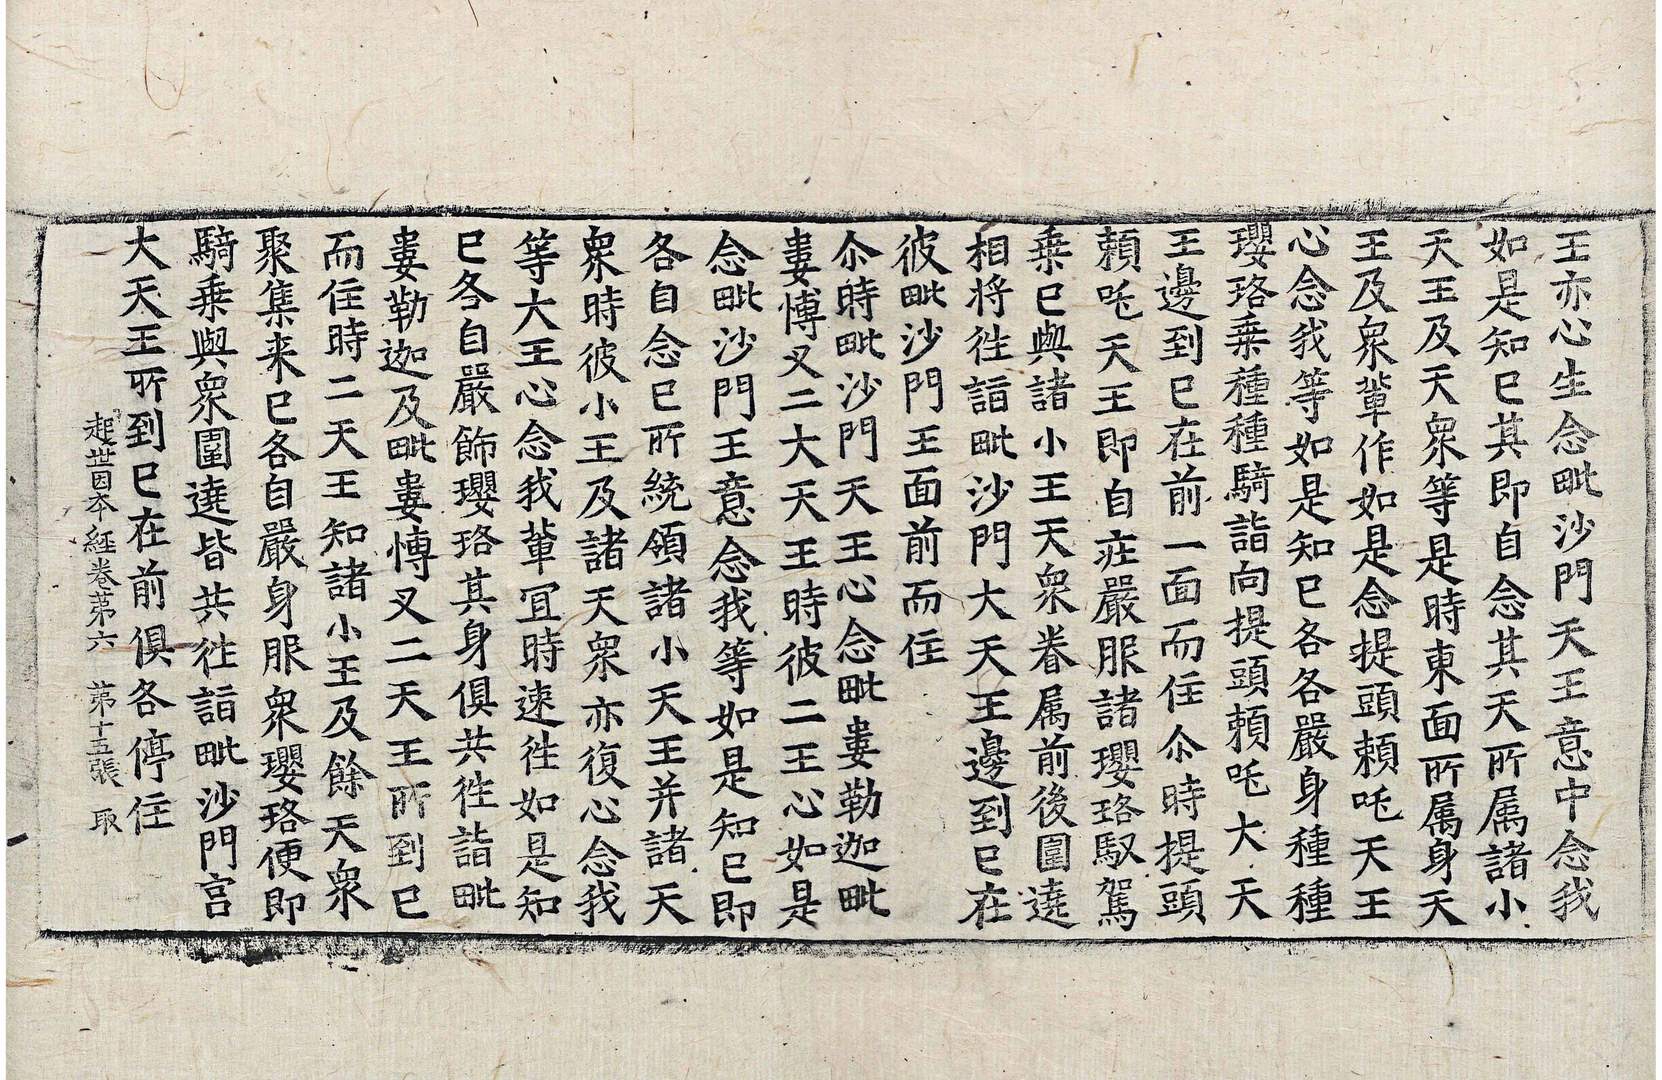 王亦心生念毗沙門天王意中念我
如是知已其即自念其天所属諸小
天王及天衆等是時東面所属身天
王及衆輩作如是念提頭頼吒天王
心念我等如是知已各各嚴身種種
瓔珞乗種種騎詣向提頭頼吒大天
王邊到已在前一面而住尒時提頭
頼吒天王即自庄嚴服諸瓔珞馭駕
乗已與諸小王天衆眷属前後圍遶
相将徃詣毗沙門大天王邊到已在
彼毗沙門王面前而住
尒時毗沙門天王心念毗婁勒迦毗
婁博叉二大天王時彼二王心如是
念毗沙門王意念我等如是知已即
各自念已所統領諸小天王并諸天
衆時彼小王及諸天衆亦復心念我
等大王心念我輩冝時速徃如是知
已各自嚴飾瓔珞其身俱共徃詣毗
婁勒迦及毗婁博叉二天王所到已
而住時二天王知諸小王及餘天衆
聚集来已各自嚴身服衆瓔珞便即
騎乗與衆圍遶皆共徃詣毗沙門宫
大天王所到已在前俱各停住
起丗因本經卷第六 第十五張 取